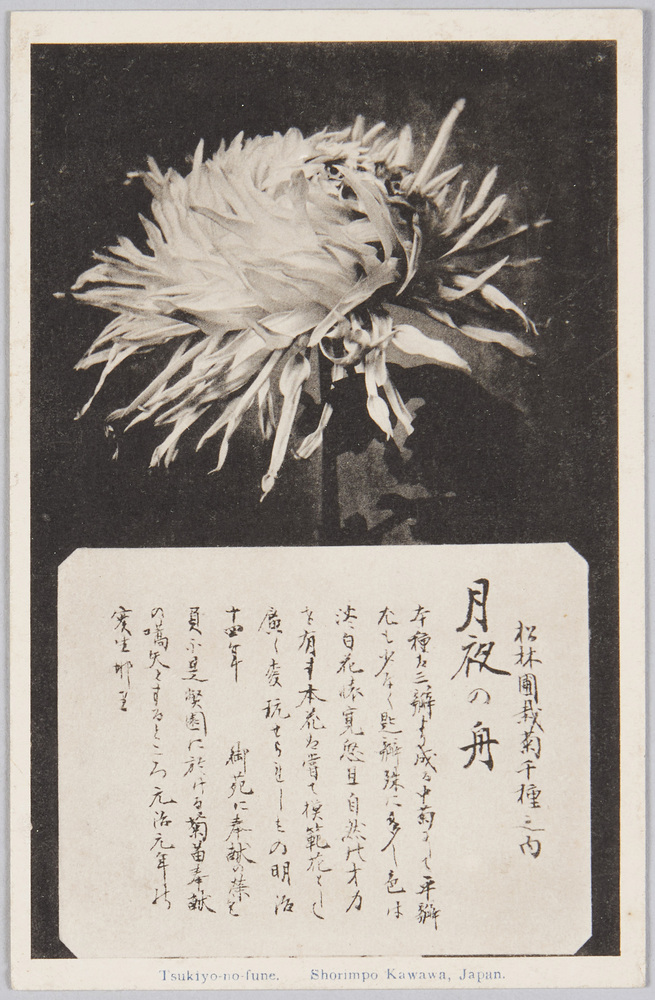 松林圃栽菊千種之内
月夜の舟
本種は三瓣より成る中菊にして平瓣
尤も少なく匙瓣殊に多し色は
淡白花容寛悠且自然の才力
を有す本花は嘗て模範花として
廣く愛玩せられしもの明治
十四年 御苑に奉献の榮を
負ふ是繁園に於ける菊苗奉献
の嚆矢とするところ元治元年の
實生
Tsukiyo-no-fune. Shorimpo Kawawa, Japan.